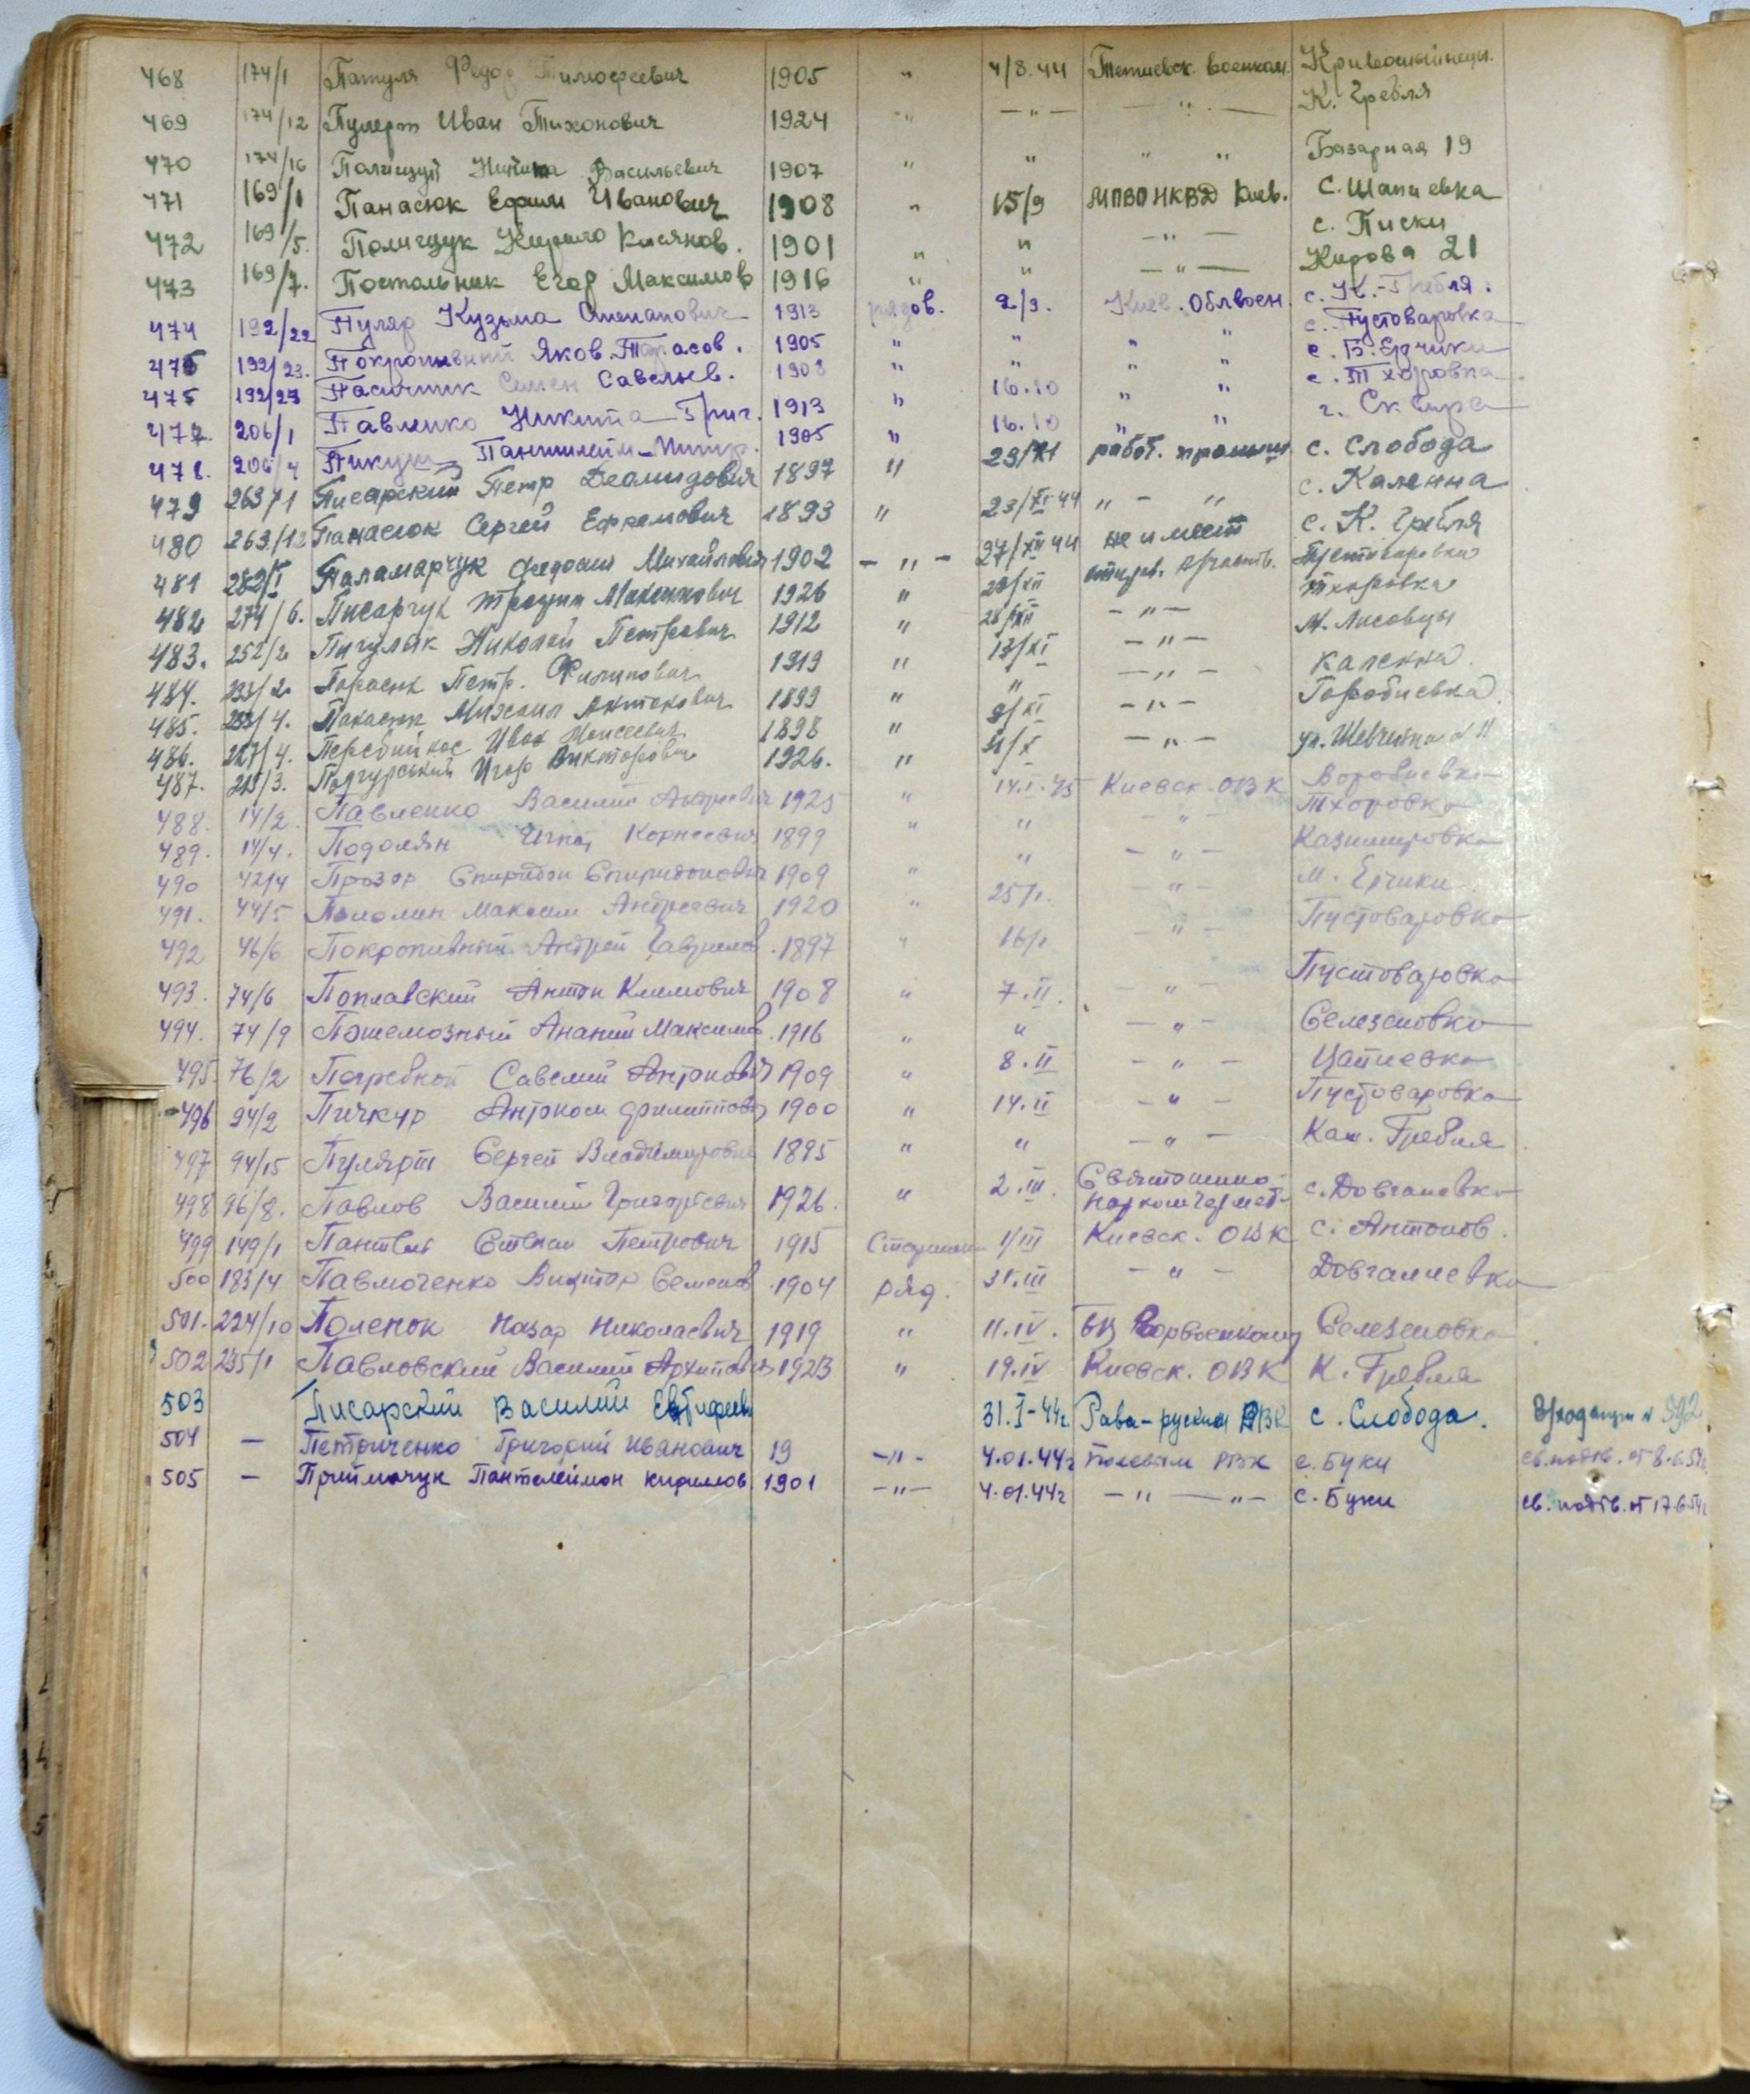 468 174/1 Патуля Федор Тимофеевич 1905 " 4/8.44 Тетиевск. военком. Кривошыйнецы.
469 174/12 Пулярт Иван Тихонович 1924 " — " — — " — К. Гребля
470 174/16 Полищук Никита Васильевич 1907 " " " " Базарная 19
471 169/1 Панасюк Ефим Иванович 1908 " 15/9 МПВО НКВД Киев. с. Шапиевка
472 169/5. Полищук Кирило Касянов. 1901 " " — " — с. Писки
473 169/7. Постольник Егор Максимов 1916 " " — " — Кирова 21
474 192/22 Пуляр Кузьма Степанович 1913 рядов. 2/9. Киев. Облвоен. с. К.-Гребля.
476 192/23. Покропивный Яков Тарасов. 1905 " " " " с. Пустоваровка
475 192/29 Пасичник Семен Савельев. 1908 " " " " с. Б. Ерчики
477. 206/1 Павленко Никита Григ. 1913 " 16.10 " " с. Тхоровка
478. 206/4 Пикуш Пантилейм. 1905 " 16.10 " " г. Сквира
479 263/1 Писарский Петр Деомидович 1897 " 23/XI работ. промыш. с. Слобода
480 263/12 Панасюк Сергей Ефремович 1893 " 23/XI 44 " - " с. Каленна
481 282/I Паламарчук Федосий Михайлович 1902 - " - 27/XII 44 не имеет с. К. Гребля
482 274/6. Писарчук Трофим Макимович 1926 " 29/XII Пустоваровка
483. 252/2 Пигуляк Николай Петрович 1912 " 28/XII - " - Тхоровка
484. 233/2 Петр. Филипович 1919 " 13/XI - " - М. Лисовцы
485. 233/4. Панасюк Михаил 1899 " " - " - Каленна
486. 227/4. Перебийнос Иван Моисеевич 1898 " 9/XI - " - Горобиевка
487. 215/3. Подгурський Игор Викторович 1926. " 31/X - " - ул. Шевченка
488. 14/2 Павленко Василий Андреевич 1925 " 14.I.45 Киевск. ОВК
489. 14/4. Подолян Игнат Корнеевич 1899 " " - " - Тхоровка
490 42/4 Прозор Спиридон Спиридонович 1909 " " - " - Казимировка
491. 44/5 Максим Андреевич 1920 " 25/I. - " - М. Ерчики
492 46/6 Покропивный Андрей Гаврилов. 1897 " 16/I - " - Пустоваровка
493. 74/6 Поплавский Антон Климович 1908 " 7.II. - " - Пустоваровка
494. 74/9 Ананий Максимов. 1916 " " - " - Селезеновка
495. 76/2 Погребной Савелий Антонович 1909 " 8.II - " - Цапиевка
496 94/2 Пичкур Филиппович 1900 " 14.II - " - Пустоваровка
497 94/15 Пулярт Сергей Владимирович 1895 " " - " - Кам. Гребля
498 96/8. Павлов Василий Григорьевич 1926. " 2.III. Святошино-наркомчермет с. Довгалевка
499 149/1 Степан Петрович 1915 1/III Киевск. ОВК с. Антонов.
500 183/4 Павлюченко Виктор Семенов. 1904 ряд. 31.III - " - Довгалиевка
501. 224/10 Поленок Назар Николаевич 1919 " 11.IV. Горвоенкомат Селезеновка
502 235/1 Павловский Василий Архипович 1923 " 19.IV Киевск. ОВК К. Гребля
503 Писарский Василий 31.I-44г Рава-руский РВК с. Слобода. № 392
504 — Петриченко Григорий Иванович 19 -"- 4.01.44г Полевым РВК с. Буки св. подтв. от 8.6.54г
505 — Приймачук Пантелеймон Кирилов 1901 -"- 4.01.44г - " - " - с. Буки св. подтв. от 17.6.54г